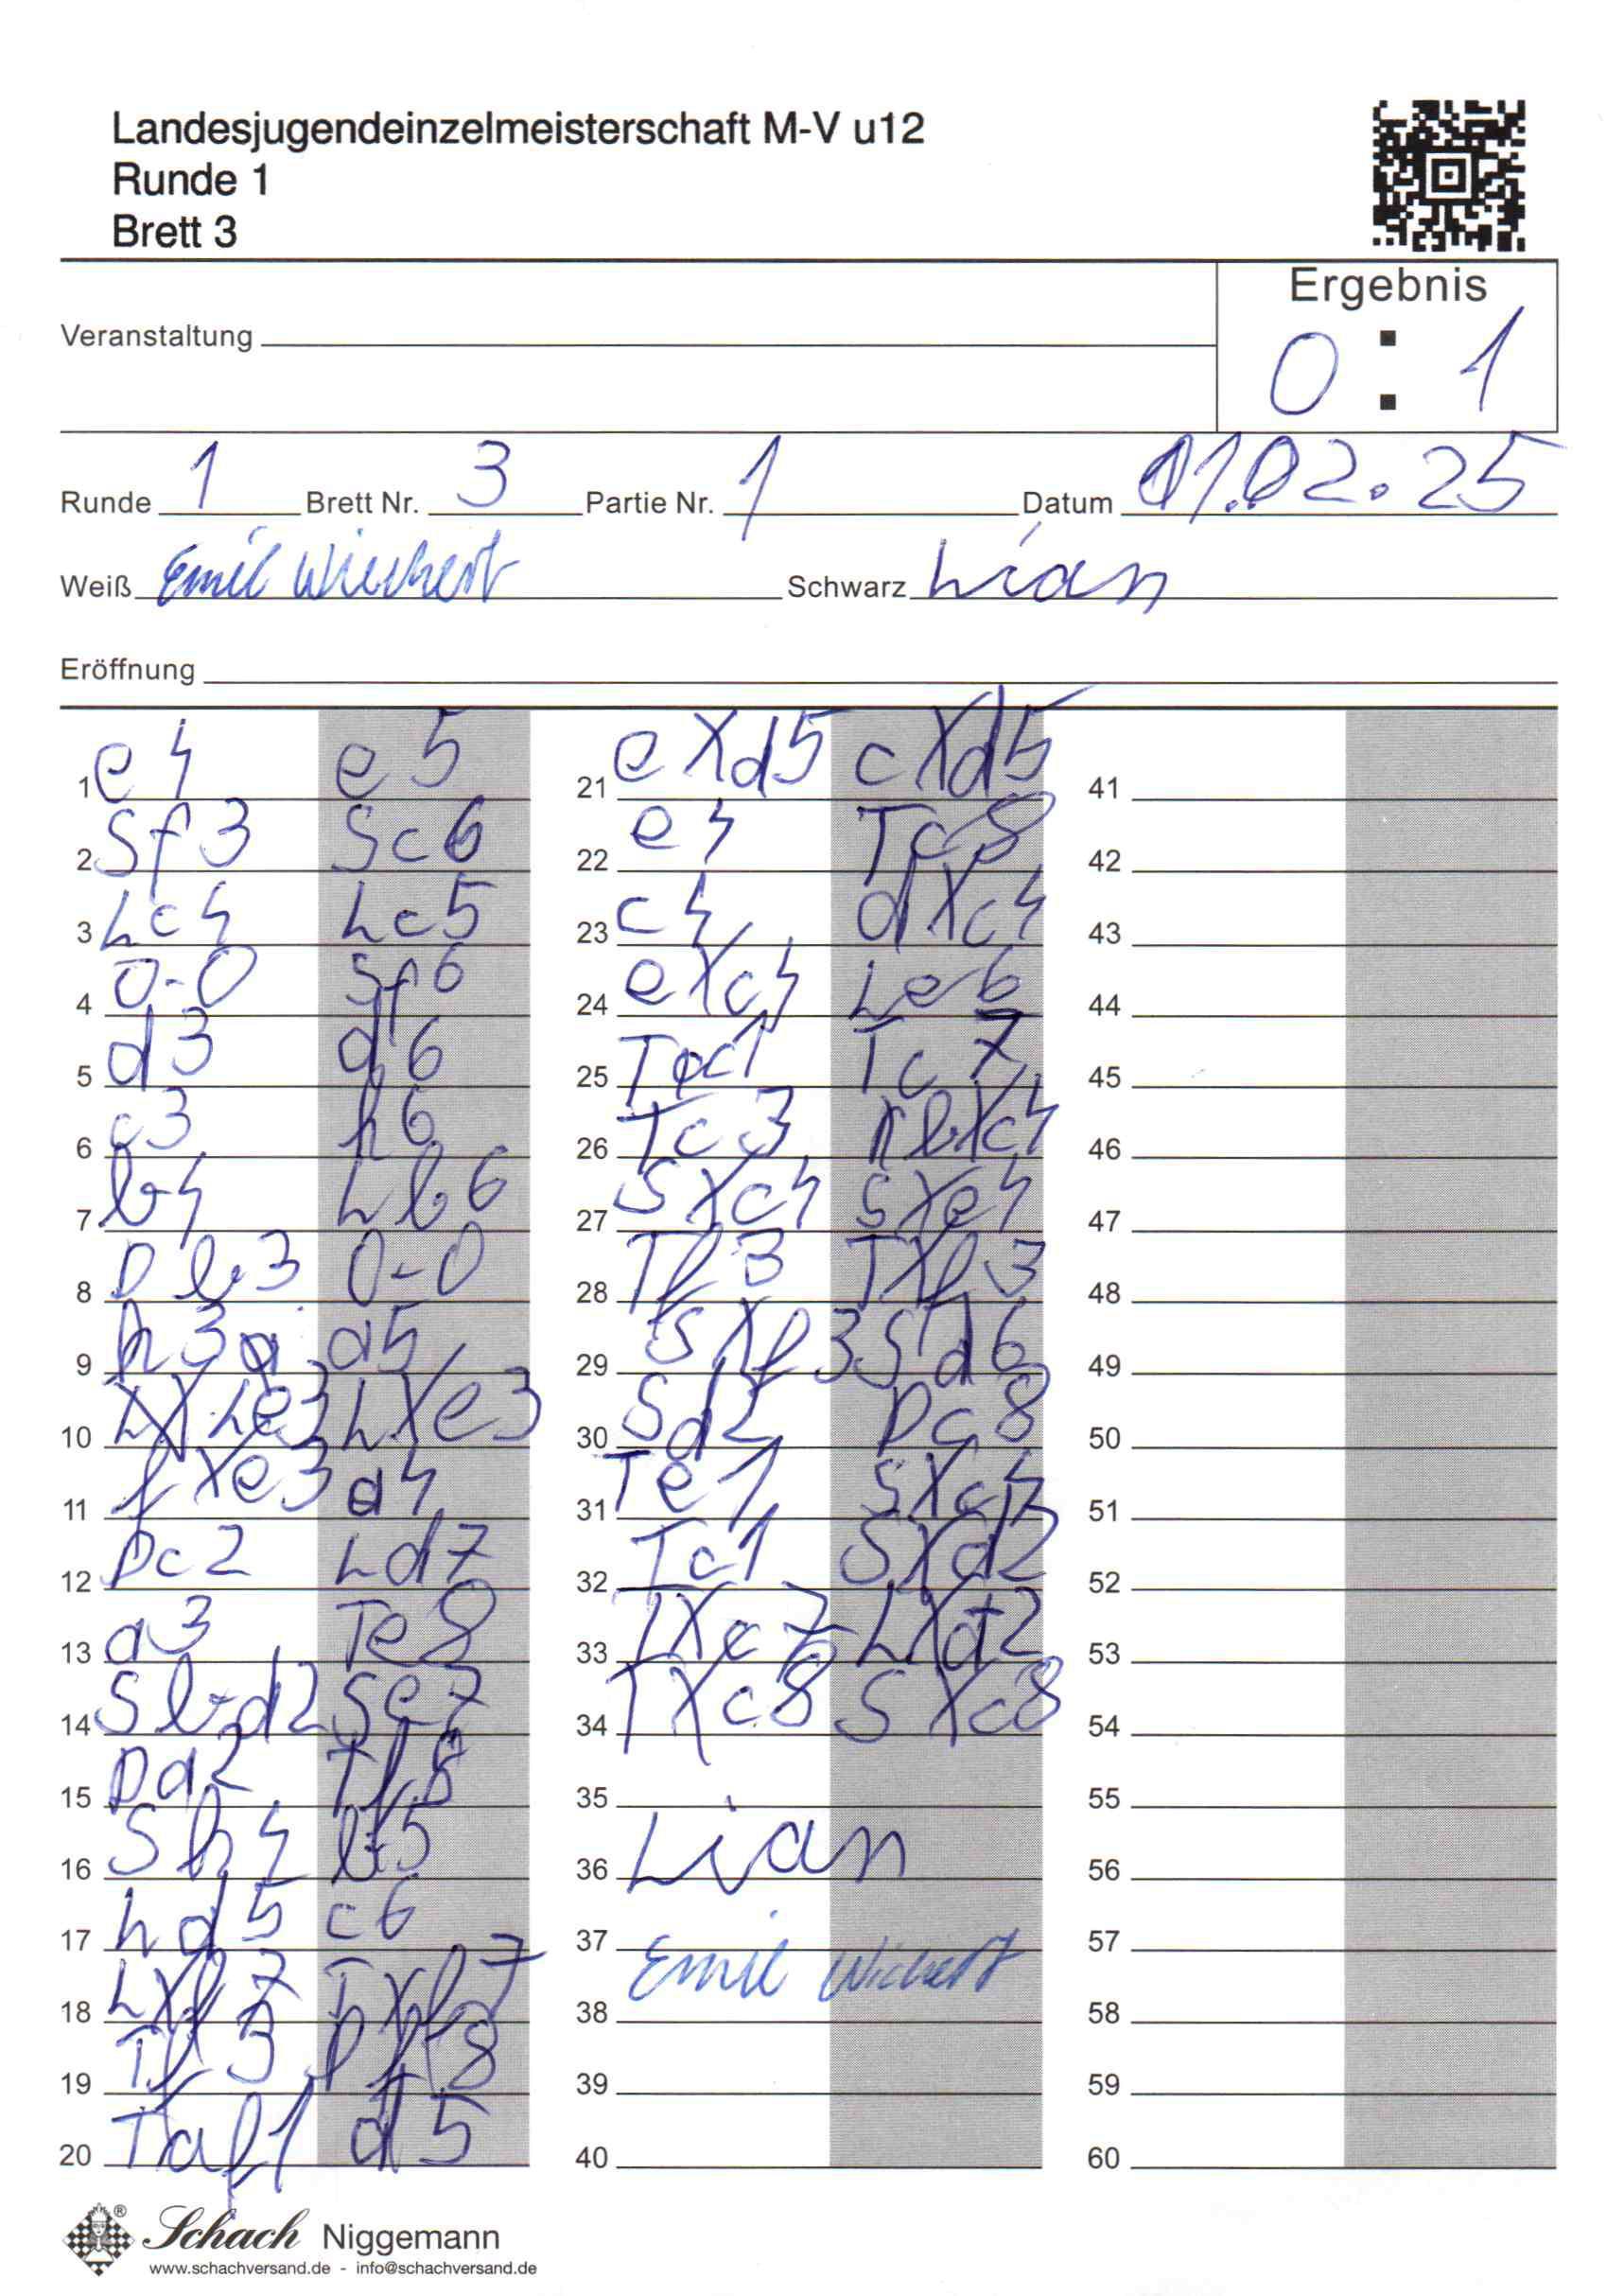 Landesjugendeinzelmeisterschaft M-V u12
Runde 1
Brett 3
Ergebnis
0 : 1
Veranstaltung
Runde 1 Brett Nr. 3 Partie Nr. 1 Datum 01.02.25
Weiß Emil Wiechert Schwarz Lian
Eröffnung
1 e4 e5
2 Sf3 Sc6
3 Lc4 Lc5
4 0-0 Sf6
5 d3 d6
6 c3 h6
7 b4 Lb6
8 Db3 0-0
9 h3 a5
10 Le3 LXe3
11 fXe3 a4
12 Dc2 Ld7
13 a3 Te8
14 Sbd2 Se7
15 Da2 Tf8
16 Sh4 b5
17 Ld5 c6
18 LXf7 TXf7
19 Tf3 Df8
20 Taf1 d5
21 eXd5 cXd5
22 e4 Tc8
23 c4 dXc4
24 eXc4 Le6
25 Tc1 Tc7
26 Tc3 bXc4
27 SXc4 SXe4
28 Tf3 TXf3
29 SXf3 Sd6
30 Sd2 Dc8
31 Te1 SXc4
32 Tc1 SXd2
33 TXc7 LXa2
34 TXc8 SXc8
35
36 Lian
37 Emil Wichert
38
39
40
41
42
43
44
45
46
47
48
49
50
51
52
53
54
55
56
57
58
59
60
Schach Niggemann
www.schachversand.de - info@schachversand.de